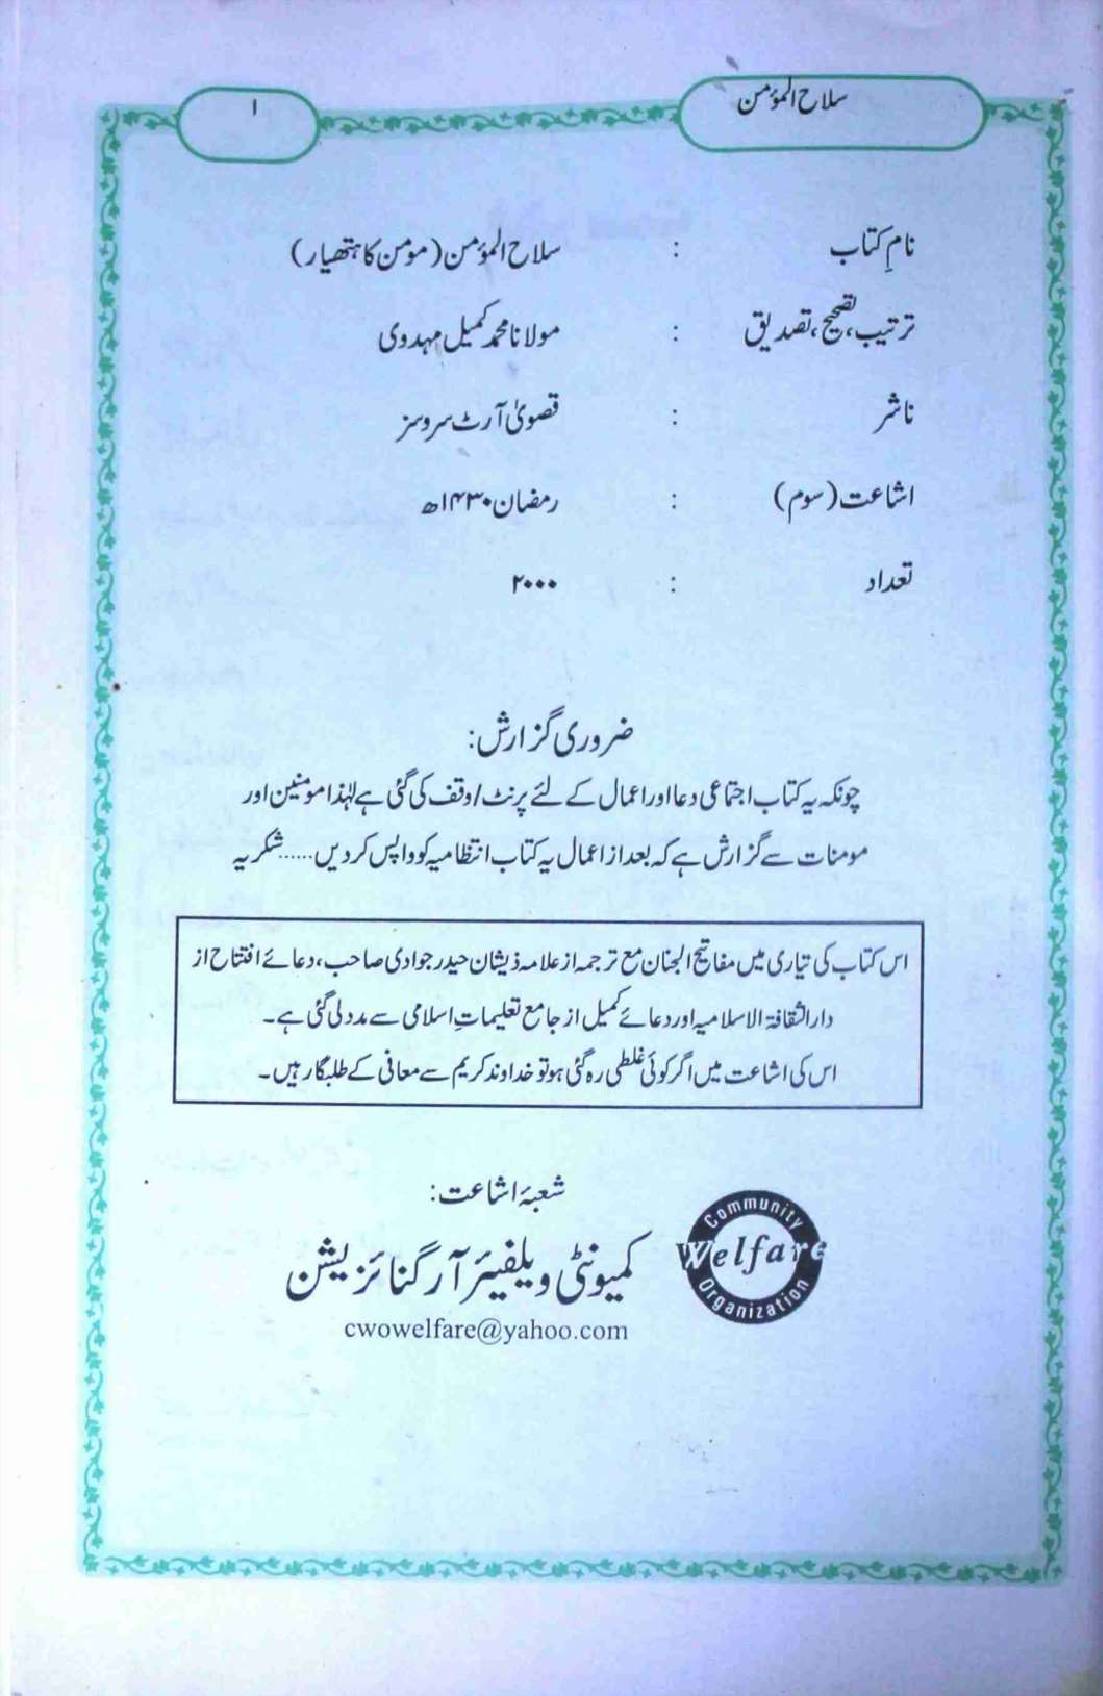 سلاح المؤمن
۱
نامِ کتاب : سلاح المؤمن (مومن کا ہتھیار)
ترتیب، تصحیح، تصدیق : مولانا محمد کمیل مہدوی
ناشر : قصویٰ آرٹ سروسز
اشاعت (سوم) : رمضان ۱۴۳۰ھ
تعداد : ۲۰۰۰
ضروری گزارش:
چونکہ یہ کتاب اجتماعی دعا اور اعمال کے لئے پرنٹ / وقف کی گئی ہے لہٰذا مومنین اور
مومنات سے گزارش ہے کہ بعد از اعمال یہ کتاب انتظامیہ کو واپس کر دیں ...... شکریہ
اس کتاب کی تیاری میں مفاتیح الجنان مع ترجمہ از علامہ ذیشان حیدر جوادی صاحب، دعائے افتتاح از
دار الثقافۃ الاسلامیہ اور دعائے کمیل از جامع تعلیماتِ اسلامی سے مدد لی گئی ہے۔
اس کی اشاعت میں اگر کوئی غلطی رہ گئی ہو تو خداوند کریم سے معافی کے طلبگار ہیں۔
شعبۂ اشاعت:
کمیونٹی ویلفیئر آرگنائزیشن
Community
Welfare
Organization
cwowelfare@yahoo.com